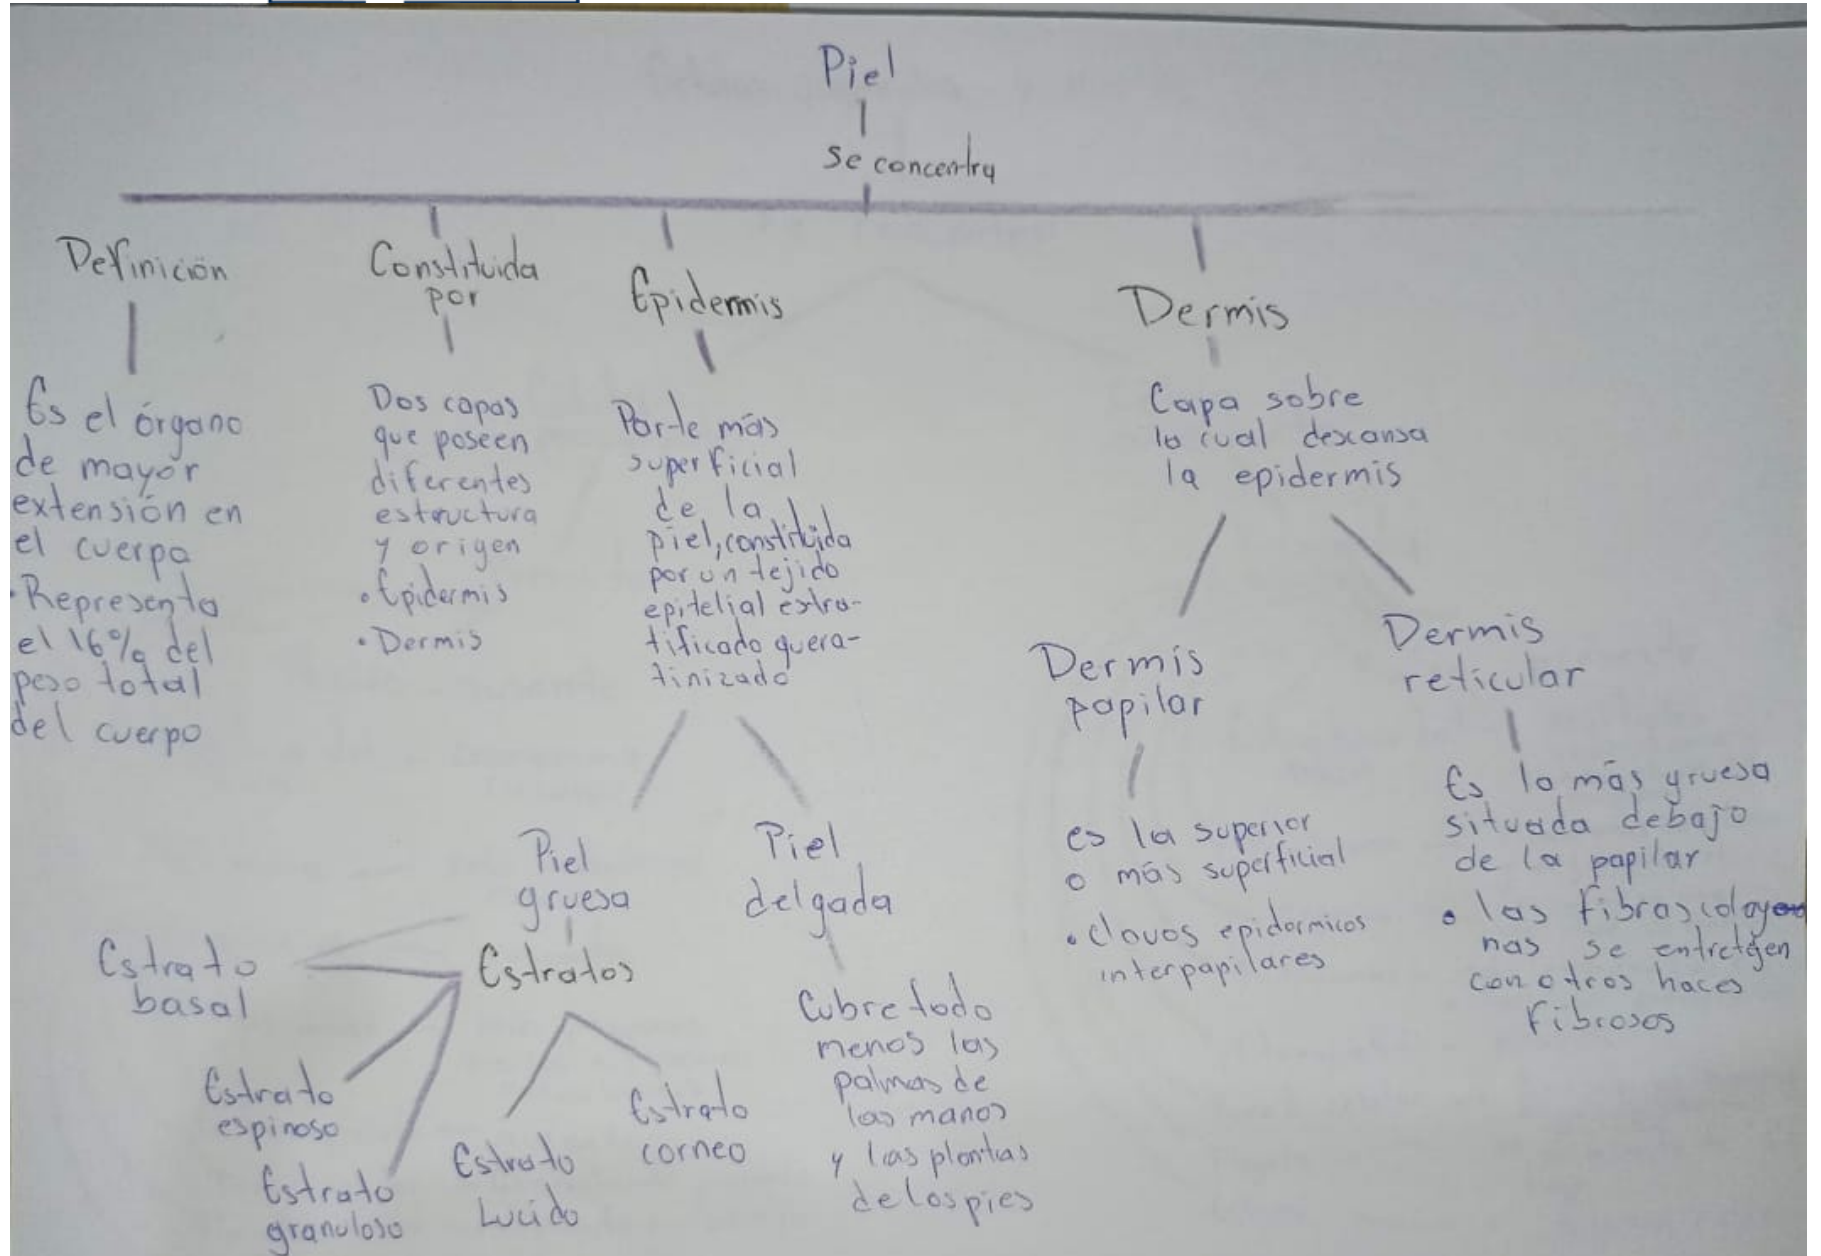 Piel
se concentra
Definición
Es el órgano
de mayor
extensión en
el cuerpo
• Representa
el 16% del
peso total
del cuerpo
Constituida
por
Dos capas
que poseen
diferentes
estructura
y origen
• Epidermis
• Dermis
Epidermis
Parte más
superficial
de la
piel, constituida
por un tejido
epitelial estra-
tificado quera-
tinizado
Piel
gruesa
Estratos
Estrato
basal
Estrato
espinoso
Estrato
granuloso
Estrato
Lucido
Estrato
corneo
Piel
delgada
Cubre todo
menos las
palmas de
las manos
y las plantas
de los pies
Dermis
Capa sobre
la cual descansa
la epidermis
Dermis
papilar
es la superior
o más superficial
• Clavos epidermicos
interpapilares
Dermis
reticular
Es la más gruesa
situada debajo
de la papilar
• las fibras
nas se entretejen
con otros haces
Fibrosos